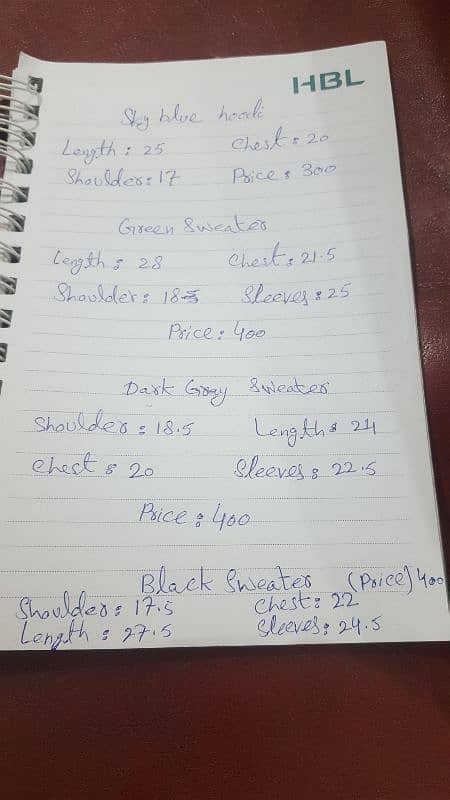 HBL
Sky blue hoodi
Length : 25 Chest : 20
Shoulder : 17 Price : 300
Green Sweater
Length : 28 Chest : 21.5
Shoulder : 18.5 Sleeves : 25
Price : 400
Dark Gray Sweater
Shoulder : 18.5 Length : 24
Chest : 20 Sleeves : 22.5
Price : 400
Black Sweater (Price) 400
Shoulder : 17.5 Chest : 22
Length : 27.5 Sleeves : 24.5